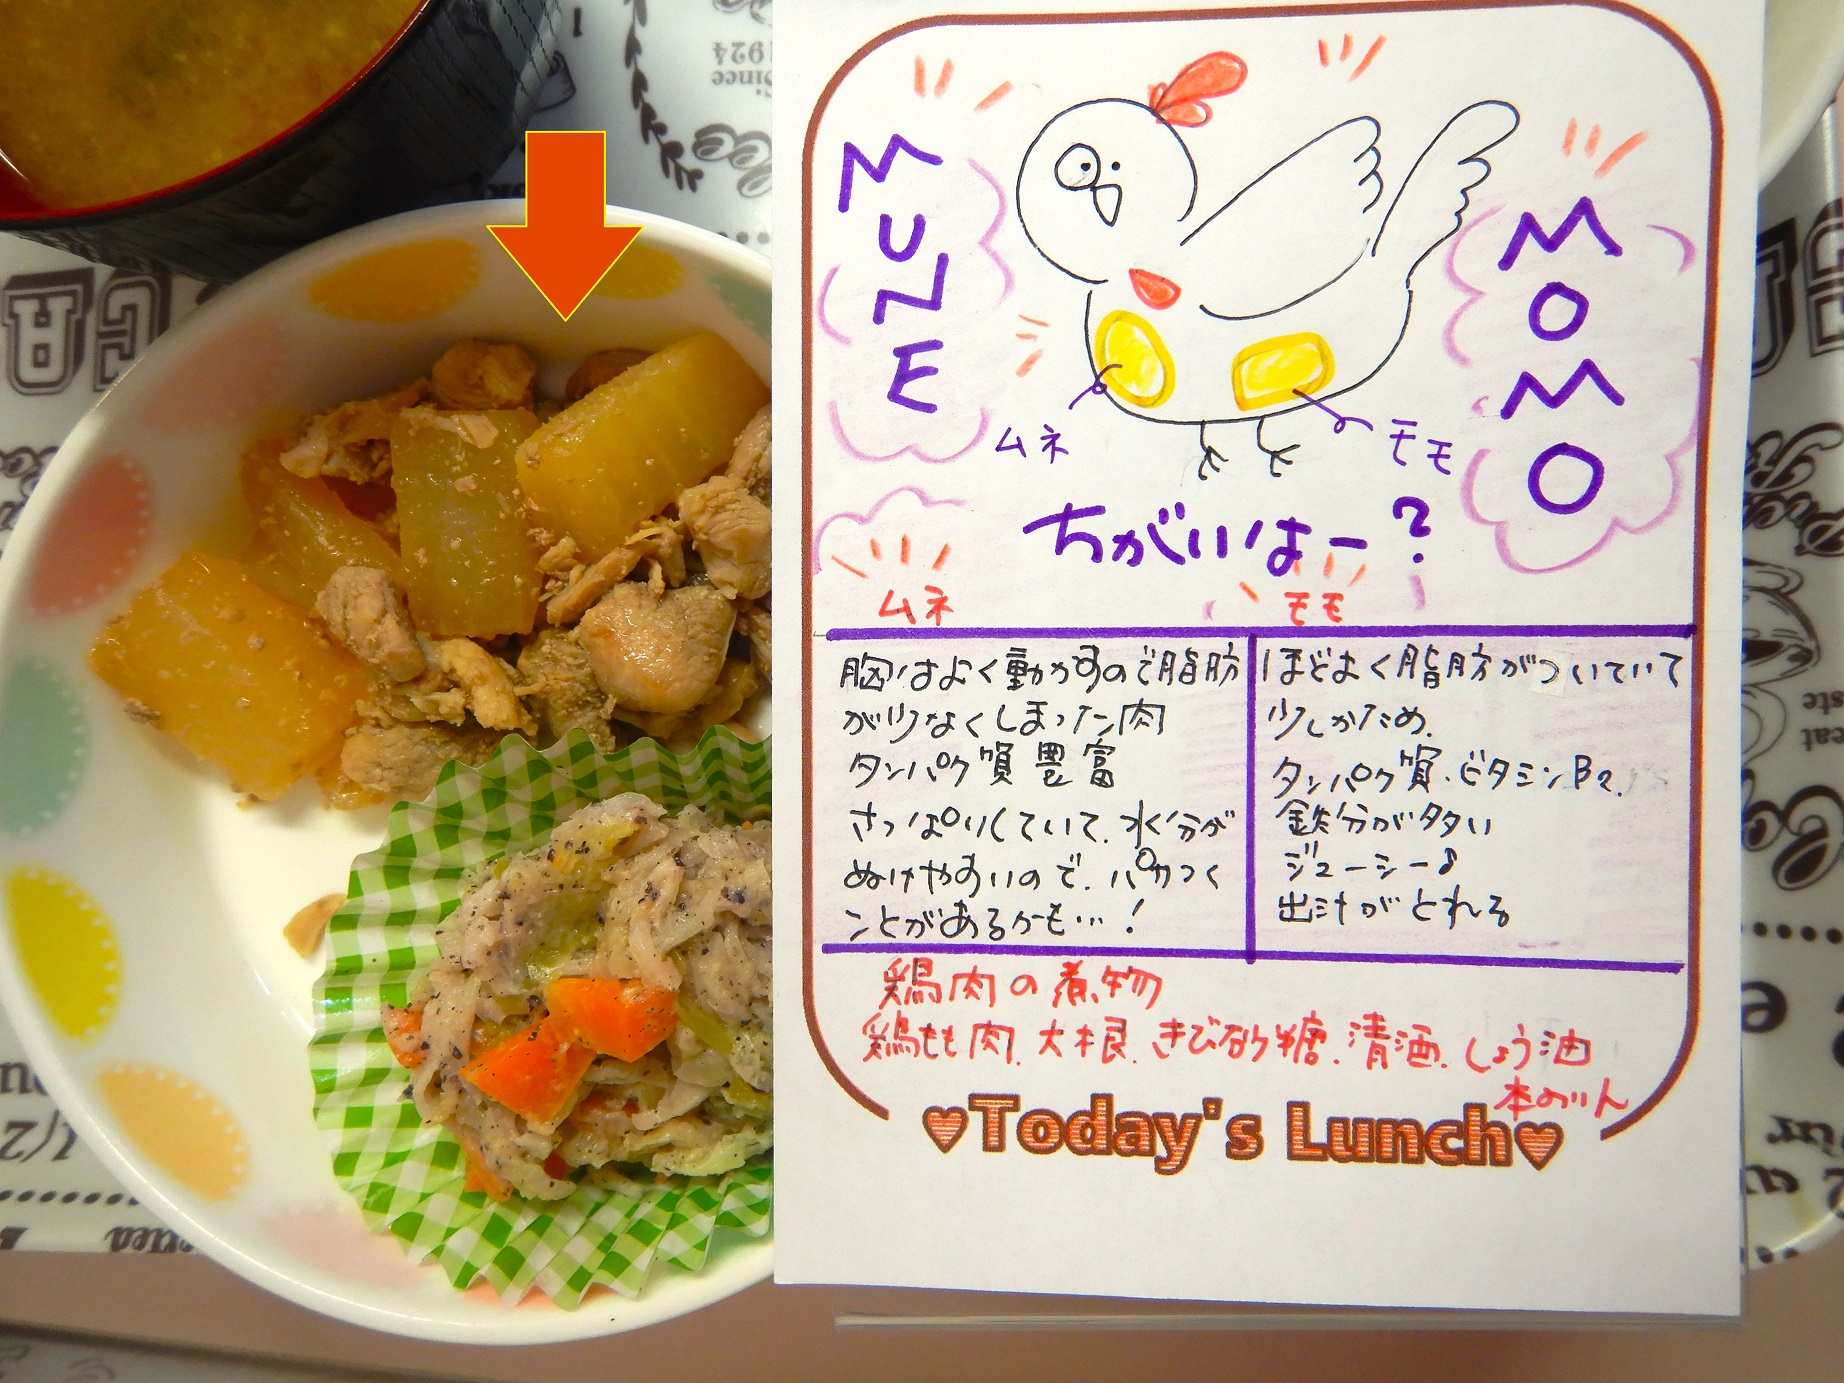 MUNE
MOMO
ムネ
モモ
ちがいはー?
ムネ
モモ
胸はよく動かすので脂肪
が少なくしまった肉
タンパク質豊富
さっぱりしていて、水分が
ぬけやすいので、パサつく
ことがあるかも…!
ほどよく脂肪がついていて
少しかため、
タンパク質・ビタミンB2、
鉄分が多い
ジューシー♪
出汁がとれる
鶏肉の煮物
鶏もも肉、大根、きび砂糖、清酒、しょう油
本みりん
♥Today's Lunch♥
Since
1924